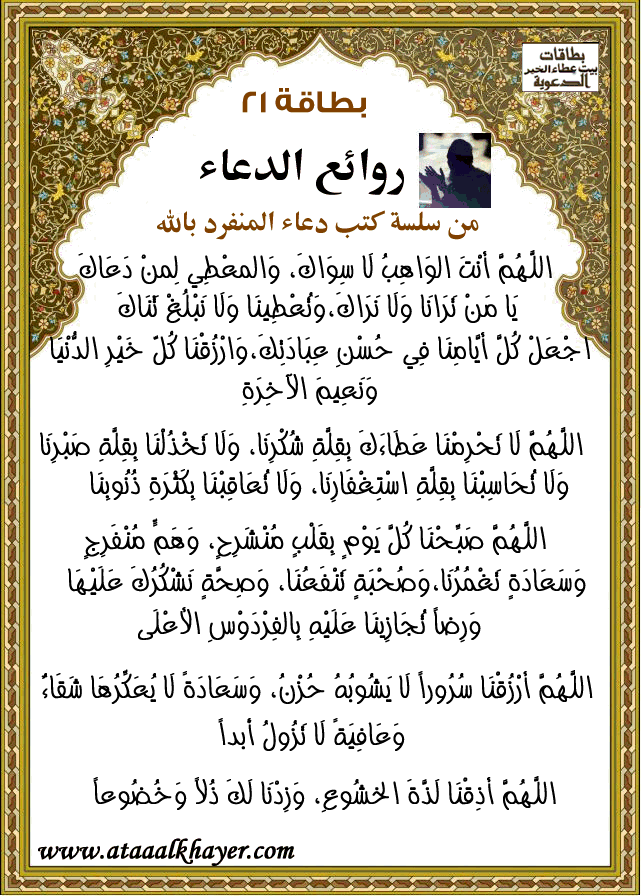 بطاقات
بيت عطاء الخير
الدعوية
بطاقة ٢١
روائع الدعاء
من سلسة كتب دعاء المنفرد بالله
اللَّهُمَّ أنْتَ الوَاهِبُ لَا سِوَاكَ، وَالمعْطِي لِمنْ دَعَاكَ
يَا مَنْ تَرَانَا وَلَا نَرَاكَ،وَتُعْطِينَا وَلَا نَبْلُغْ ثَنَاكَ
اجْعَلْ كُلَّ أيَّامِنَا فِي حُسْنِ عِبَادَتِكَ،وَارْزُقْنَا كُلّ خَيْرِ الدُّنْيَا
وَنَعِيمَ الآخِرَةِ
اللَّهُمَّ لَا تَحْرِمْنَا عَطَاءَكَ بِقِلَّةِ شُكْرِنَا، وَلَا تَخْذُلْنَا بِقِلَّةِ صَبْرِنَا
وَلَا تُحَاسِبْنَا بِقِلَّةِ اسْتِغْفَارِنَا، وَلَا تُعَاقِبْنَا بِكَثْرَةِ ذُنُوبِنَا
اللَّهُمَّ صَبِّحْنَا كُلَّ يَوْمٍ بِقَلْبٍ مُنْشَرِحٍ، وَهَمٍّ مُنْفَرِجٍ
وَسَعَادَةٍ تَغْمُرُنَا،وَصُحْبَةٍ تَنْفَعُنَا، وَصِحَّةٍ نَشْكُرُكَ عَلَيْهَا
وَرِضاً تُجَازِينَا عَلَيْهِ بِالفِرْدَوْسِ الْأعْلَى
اللَّهُمَّ أرْزُقْنَا سُرُوراً لَا يَشُوبُهُ حُزْنُ، وَسَعَادَةً لَا يُعَكِّرُهَا شَقَاءٌ
وَعَافِيَةً لَا تَزُولُ أبداً
اللَّهُمَّ أذِقْنَا لَذَّةَ الخشُوعِ، وَزِدْنَا لَكَ ذُلاً وَخُضُوعاً
www.ataaalkhayer.com